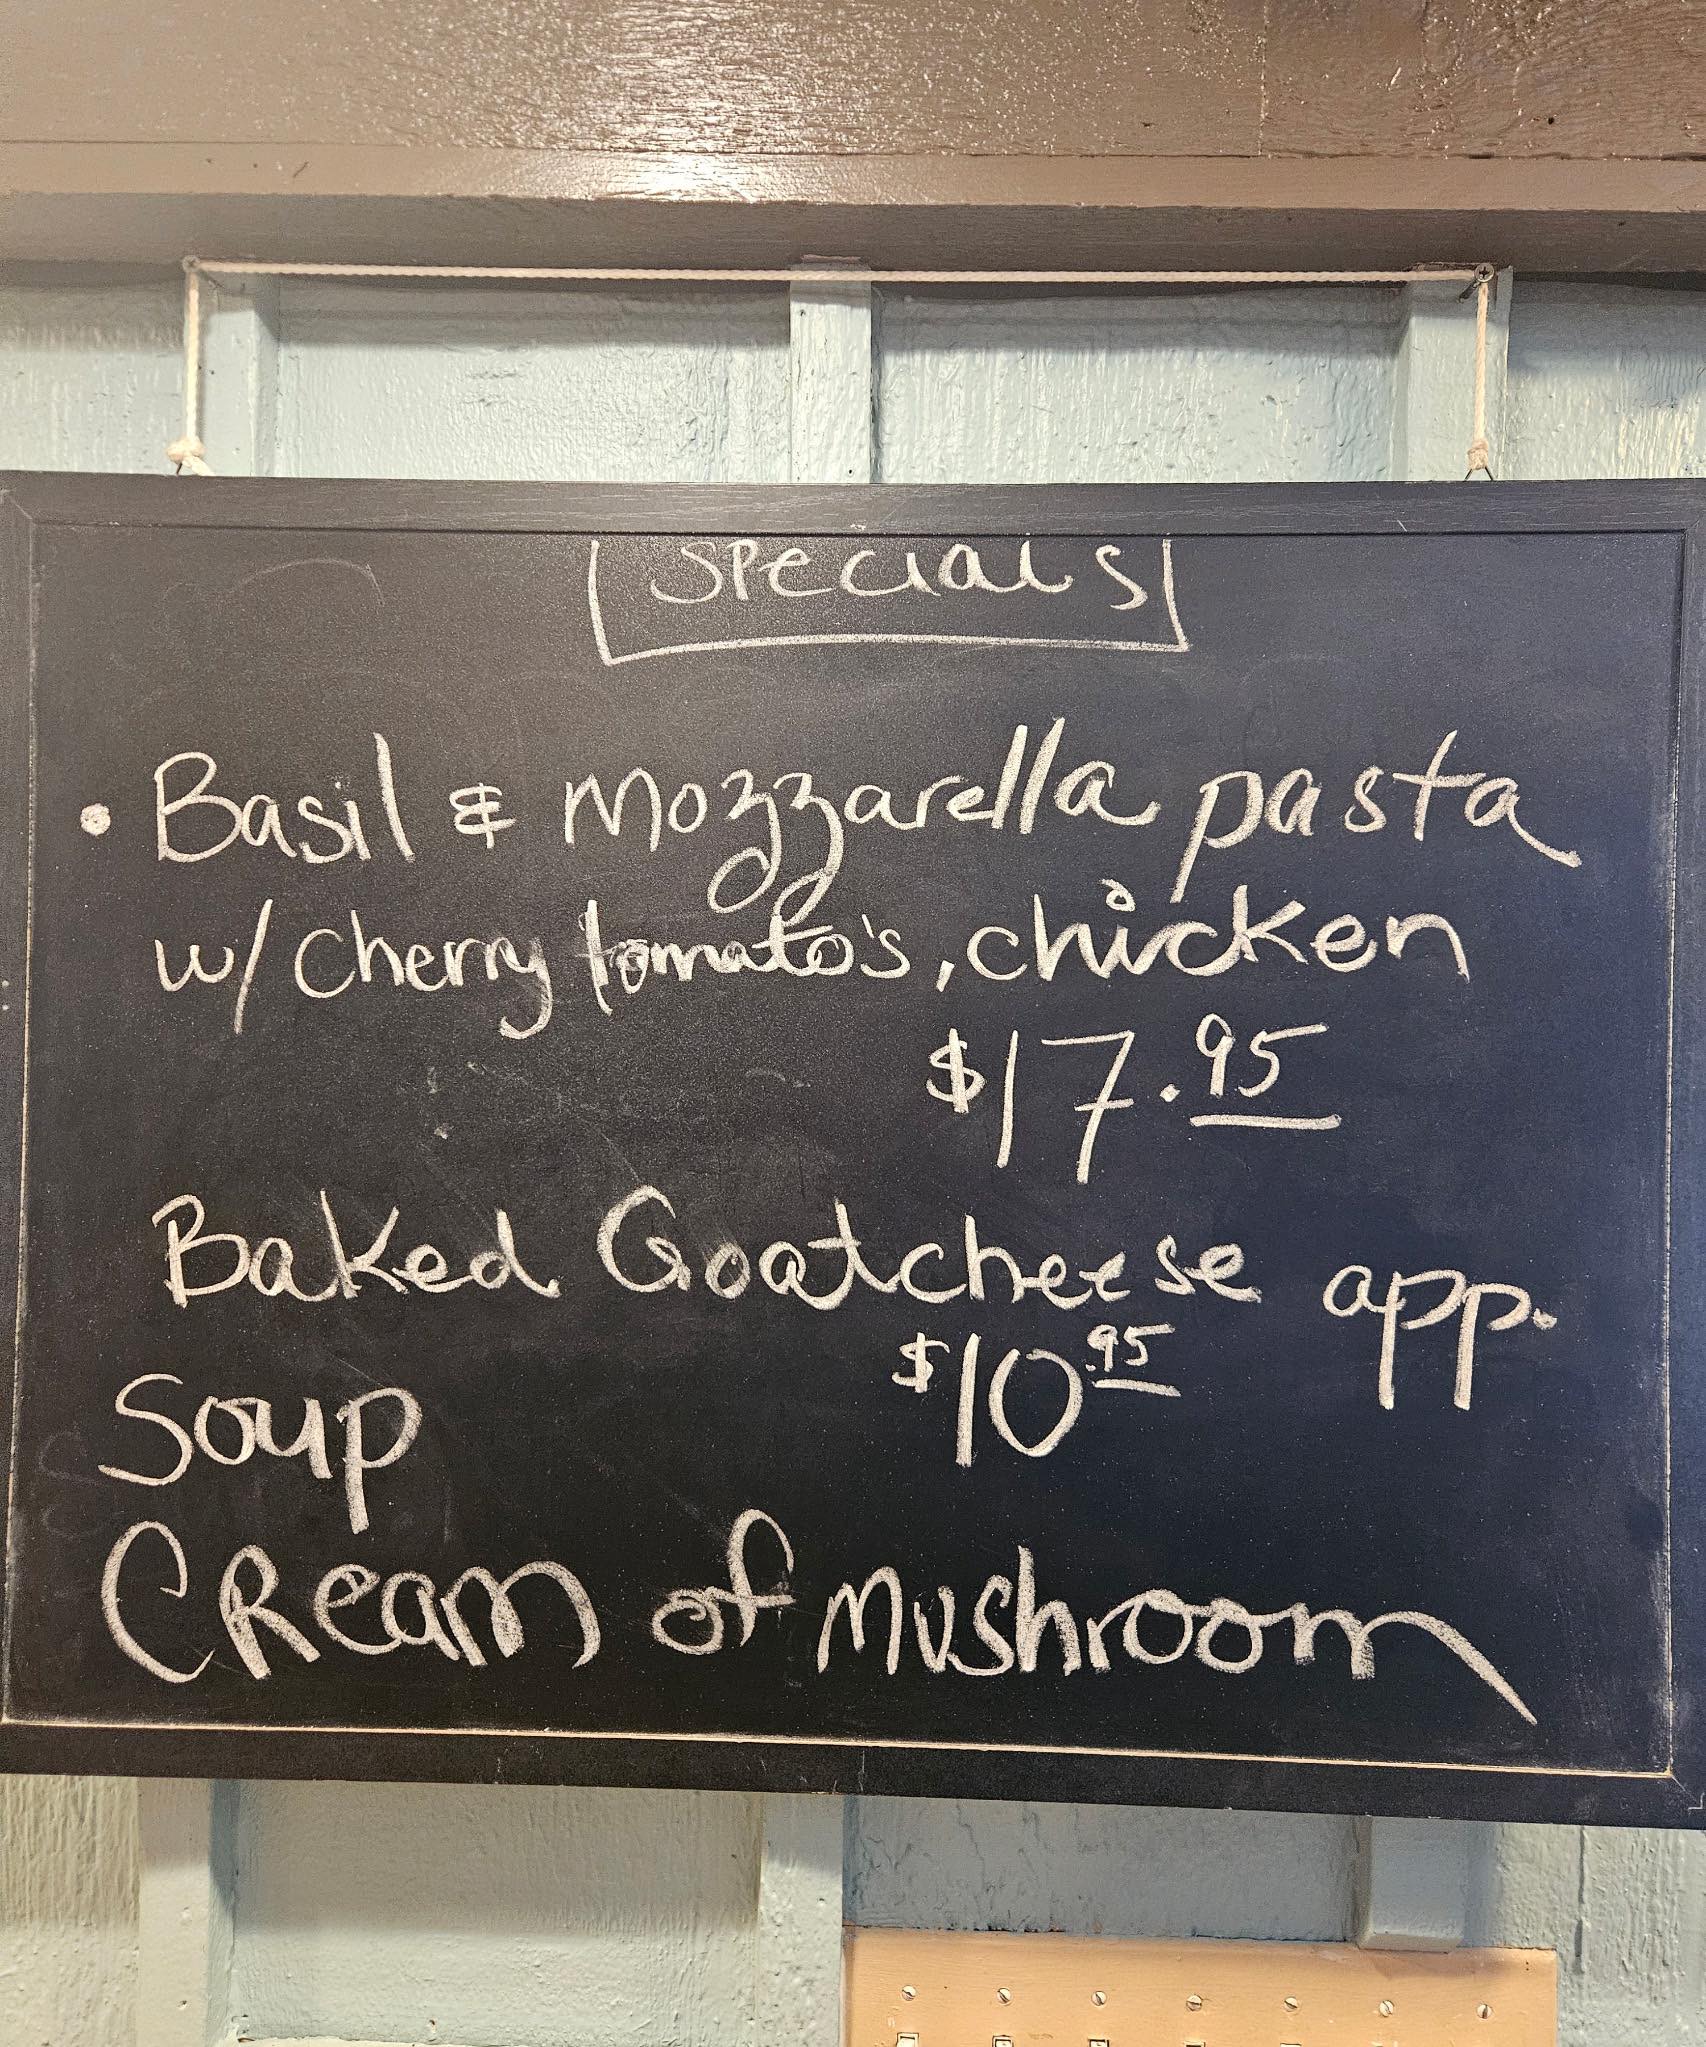 Specials
• Basil & Mozzarella pasta
w/ cherry tomato's, chicken
$17.95
Baked Goatcheese app.
$10.95
Soup
Cream of Mushroom